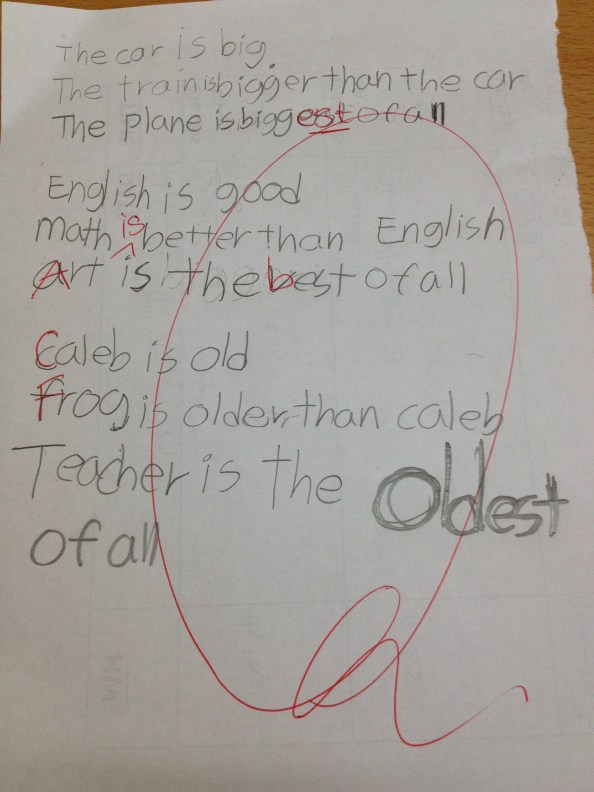 The car is big.
The train is bigger than the car
The plane is biggest of all
English is good
math is better than English
Art is the best of all
Caleb is old
Frog is older than caleb
Teacher is the Oldest
of all